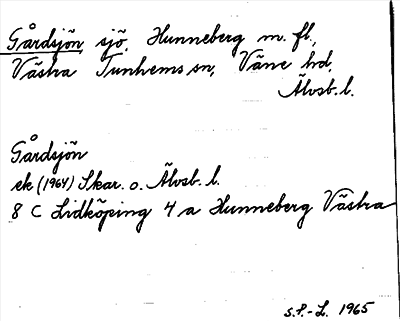 Gårdsjön, sjö, Hunneberg m. fl.,
Västra Tunhems sn, Väne hd,
Älvsb. l.
Gårdsjön
ek (1964) Skar. o. Älvsb. l.
8 C Lidköping 4 a Hunneberg Västra
S.P.-L. 1965